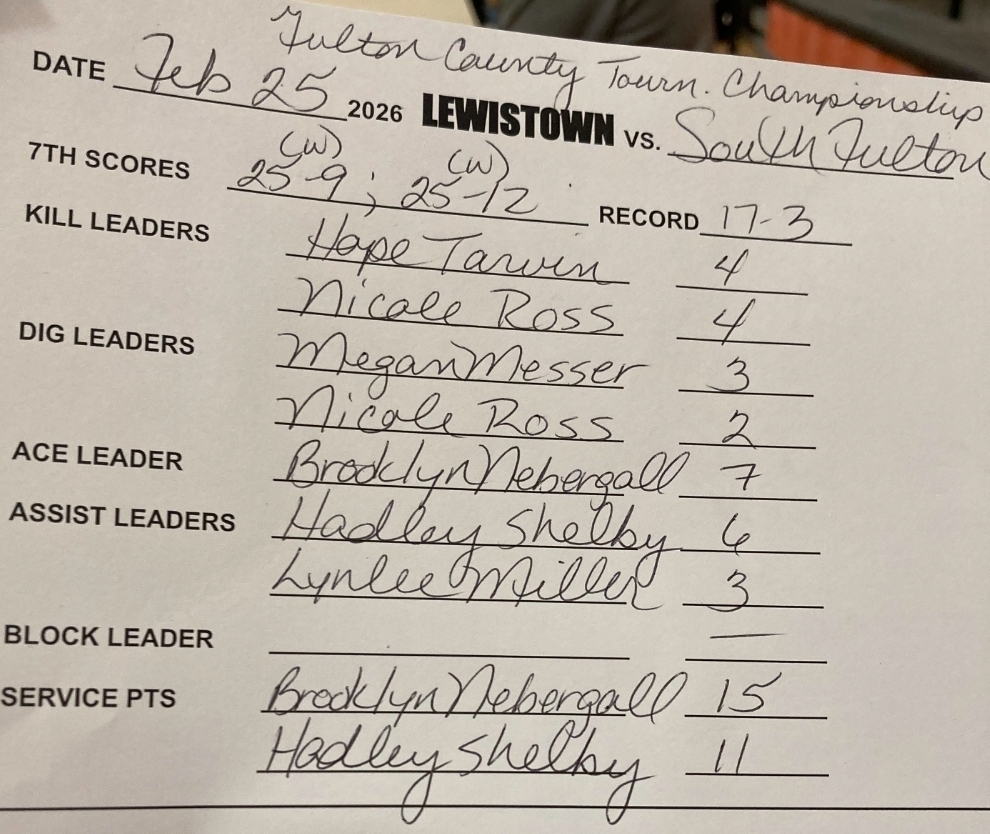 Fulton County Tourn. Championship
DATE Feb 25 2026 LEWISTOWN VS. South Fulton
(W) (W)
7TH SCORES 25-9; 25-12 RECORD 17-3
KILL LEADERS Hope Tarvin 4
Nicole Ross 4
DIG LEADERS Megan Messer 3
Nicole Ross 2
ACE LEADER Brooklyn Nebergall 7
ASSIST LEADERS Hadley Shelby 6
Lynlee Miller 3
BLOCK LEADER —
SERVICE PTS Brooklyn Nebergall 15
Hadley Shelby 11